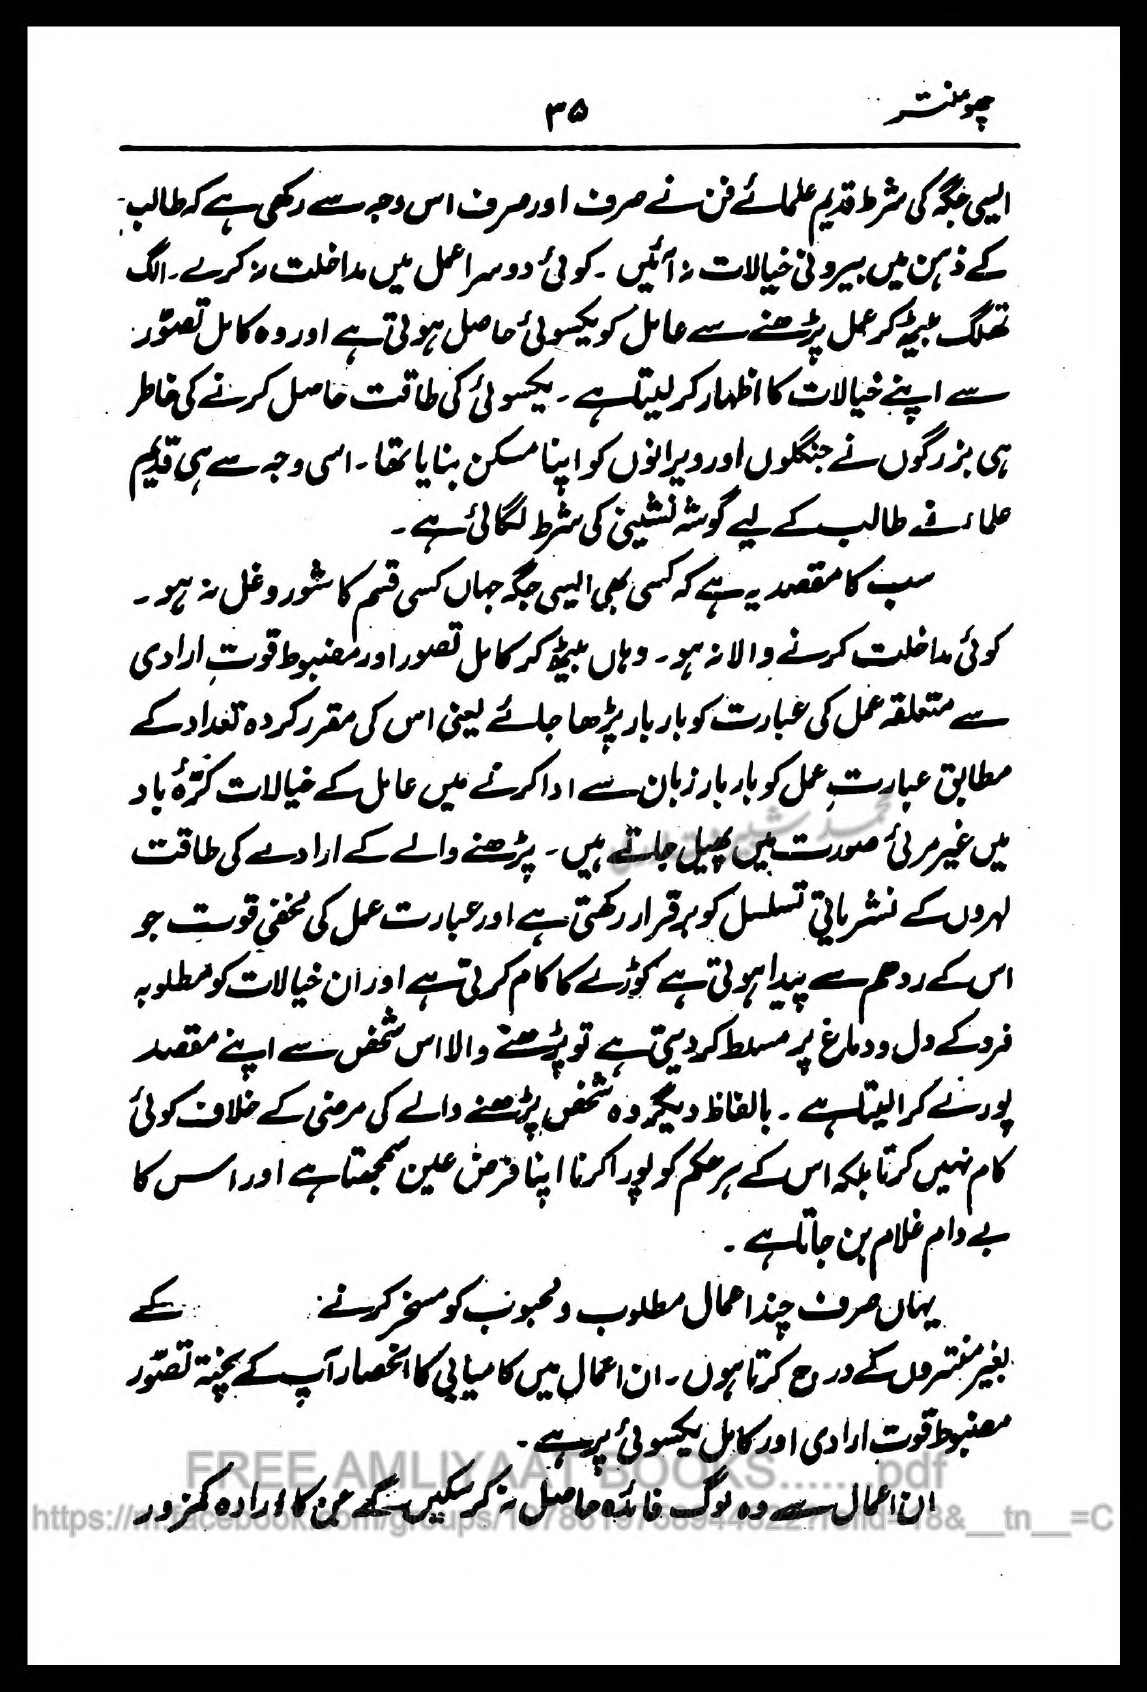 چھومنتر
۳۵
ایسی جگہ کی شرط قدیم علمائے فن نے صرف اور صرف اس وجہ سے رکھی ہے کہ طالب
کے ذہن میں بیرونی خیالات نہ آئیں ۔ کوئی دوسرا عمل میں مداخلت نہ کرے ۔ الگ
تھلگ بیٹھ کر عمل پڑھنے سے عامل کو یکسوئی حاصل ہوتی ہے اور وہ کامل تصوّر
سے اپنے خیالات کا اظہار کر لیتا ہے ۔ یکسوئی کی طاقت حاصل کرنے کی خاطر
ہی بزرگوں نے جنگلوں اور ویرانوں کو اپنا مسکن بنایا تھا ۔ اسی وجہ سے ہی قدیم
علماء نے طالب کے لیے گوشہ نشینی کی شرط لگائی ہے ۔
سب کا مقصد یہ ہے کہ کسی بھی ایسی جگہ جہاں کسی قسم کا شور و غل نہ ہو ۔
کوئی مداخلت کرنے والا نہ ہو ۔ وہاں بیٹھ کر کامل تصور اور مضبوط قوتِ ارادی
سے متعلقہ عمل کی عبارت کو بار بار پڑھا جائے یعنی اس کی مقرر کردہ تعداد کے
مطابق عبارتِ عمل کو بار بار زبان سے ادا کرنے میں عامل کے خیالات کرّۂ باد
میں غیر مرئی صورت میں پھیل جاتے ہیں ۔ پڑھنے والے کے ارادے کی طاقت
لہروں کے نشریاتی تسلسل کو برقرار رکھتی ہے اور عبارت عمل کی مخفی قوت جو
اس کے ردھم سے پیدا ہوتی ہے کوڑے کا کام کرتی ہے اور ان خیالات کو مطلوبہ
فرد کے دل و دماغ پر مسلط کر دیتی ہے تو پڑھنے والا اس شخص سے اپنے مقصد
پورے کرا لیتا ہے ۔ بالفاظ دیگر وہ شخص پڑھنے والے کی مرضی کے خلاف کوئی
کام نہیں کرتا بلکہ اس کے ہر حکم کو پورا کرنا اپنا فرض عین سمجھتا ہے اور اس کا
بے دام غلام بن جاتا ہے ۔
یہاں صرف چند اعمال مطلوب و محبوب کو مسخر کرنے کے
بغیر منتروں کے درج کرتا ہوں ۔ ان اعمال میں کامیابی کا انحصار آپ کے پختہ تصوّر
مضبوط قوت ارادی اور کامل یکسوئی پر ہے ۔
FREE AMLIYAAT BOOKS.......pdf
ان اعمال سے وہ لوگ فائدہ حاصل نہ کر سکیں گے جن کا ارادہ کمزور